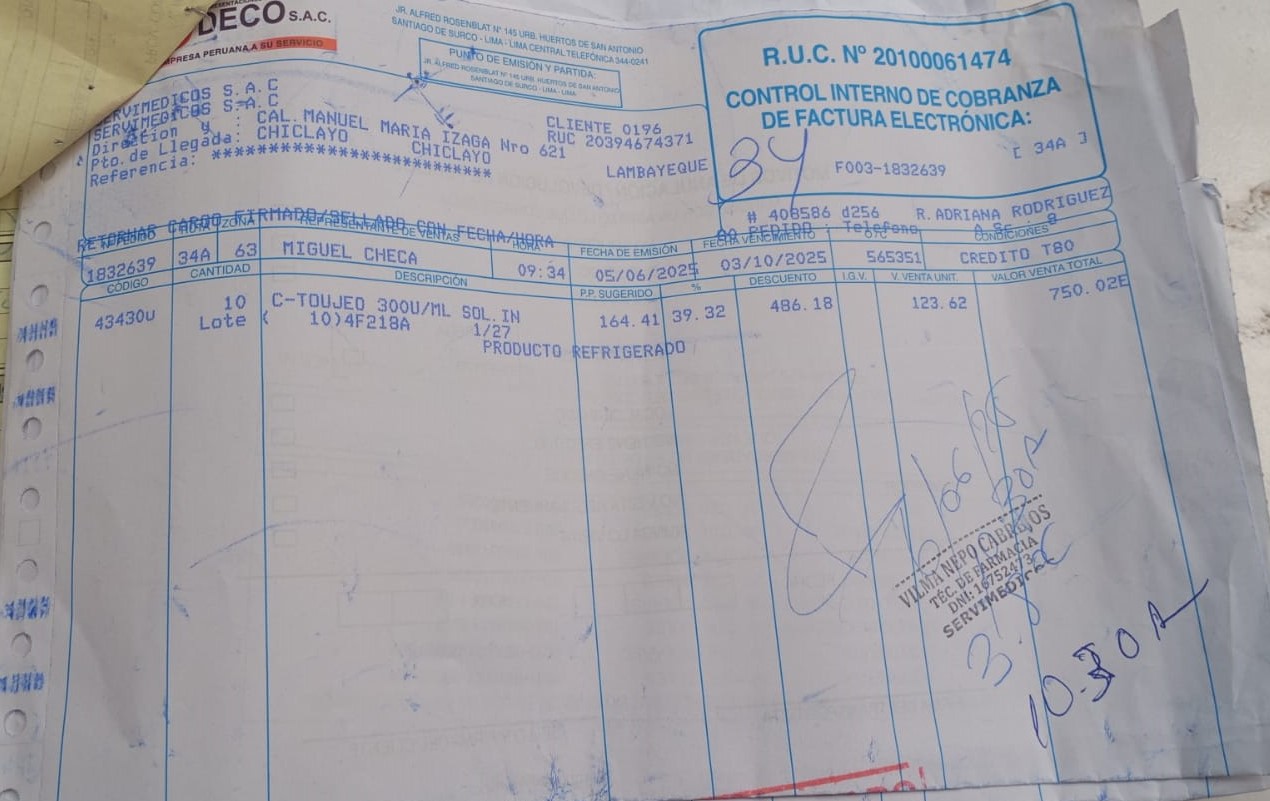 DECO S.A.C.
EMPRESA PERUANA A SU SERVICIO
JR. ALFRED ROSENBLAT N° 145 URB. HUERTOS DE SAN ANTONIO
SANTIAGO DE SURCO - LIMA - LIMA CENTRAL TELEFÓNICA 344-0241
PUNTO DE EMISIÓN Y PARTIDA:
JR. ALFRED ROSENBLAT N° 145 URB. HUERTOS DE SAN ANTONIO
SANTIAGO DE SURCO - LIMA - LIMA
R.U.C. Nº 20100061474
CONTROL INTERNO DE COBRANZA
DE FACTURA ELECTRÓNICA:
[ 34A ]
34
F003-1832639
SERVIMEDICOS S.A.C
SERVIMEDICOS S.A.C
Direction y : CAL.MANUEL MARIA IZAGA Nro 621
Pto.de Llegada: CHICLAYO CHICLAYO LAMBAYEQUE
Referencia: **************************
CLIENTE 0196
RUC 20394674371
# 408586 d256 R.ADRIANA RODRIGUEZ
PEDIDO : Telefono
RETORNAR CARGO FIRMADO/SELLADO CON FECHA/HORA
N° PEDIDO RUTA ZONA REPRESENTANTE DE VENTAS HORA FECHA DE EMISIÓN FECHA VENCIMIENTO CONDICIONES
1832639 34A 63 MIGUEL CHECA 09:34 05/06/2025 03/10/2025 565351 CREDITO T80
CÓDIGO CANTIDAD DESCRIPCIÓN P.P. SUGERIDO % DESCUENTO I.G.V. V. VENTA UNIT. VALOR VENTA TOTAL
43430U 10 C-TOUJEO 300U/ML SOL.IN 164.41 39.32 486.18 123.62 750.02E
Lote ( 10)4F218A 1/27
PRODUCTO REFRIGERADO
VILMA NEPO CABREJOS
TÉC. DE FARMACIA
DNI: 16752473
10:30 A